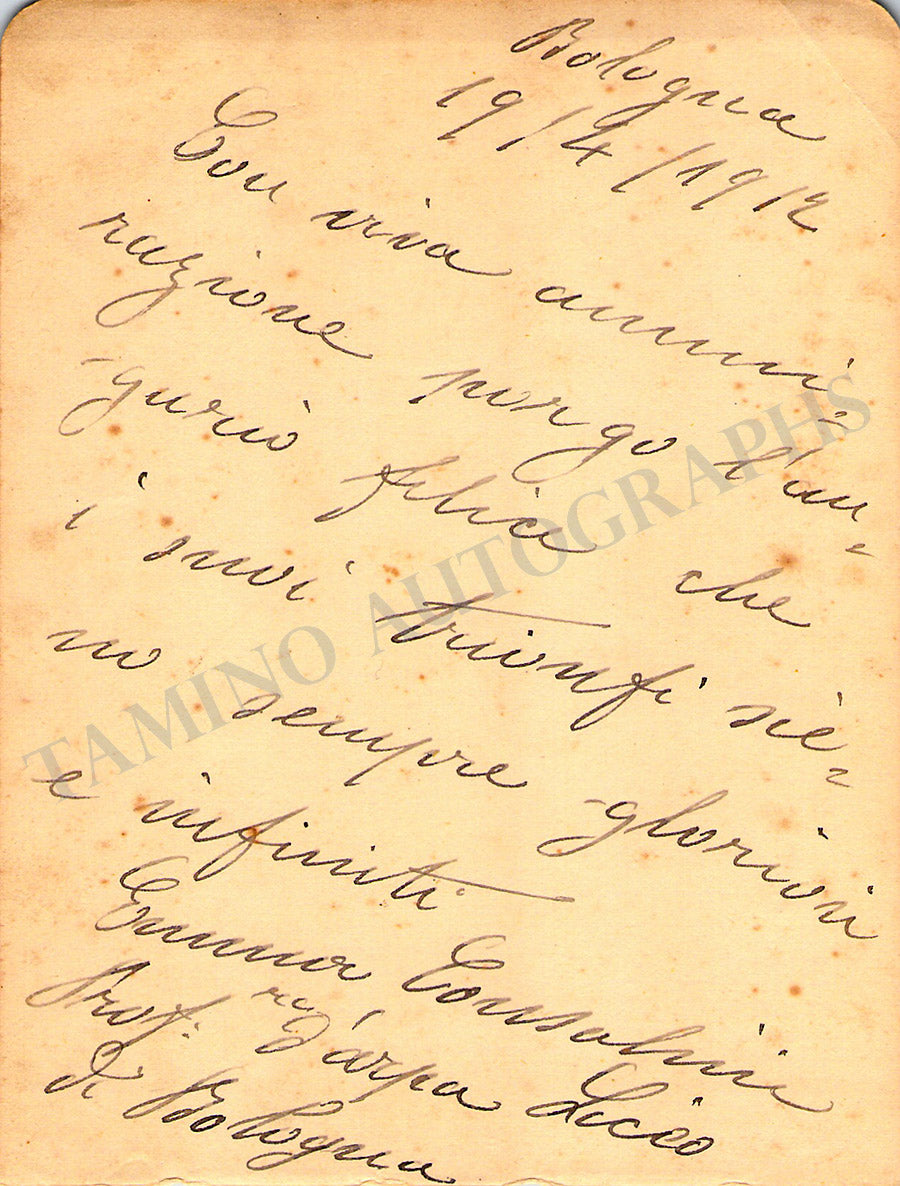 Bologna
19/4/1912
Con viva ammi=
razione porgo l'au=
gurio felice che
i suoi trionfi sie=
no sempre gloriosi
e infiniti
Emma Consolini
Prof.ra d'arpa Liceo
di Bologna
TAMINO AUTOGRAPHS